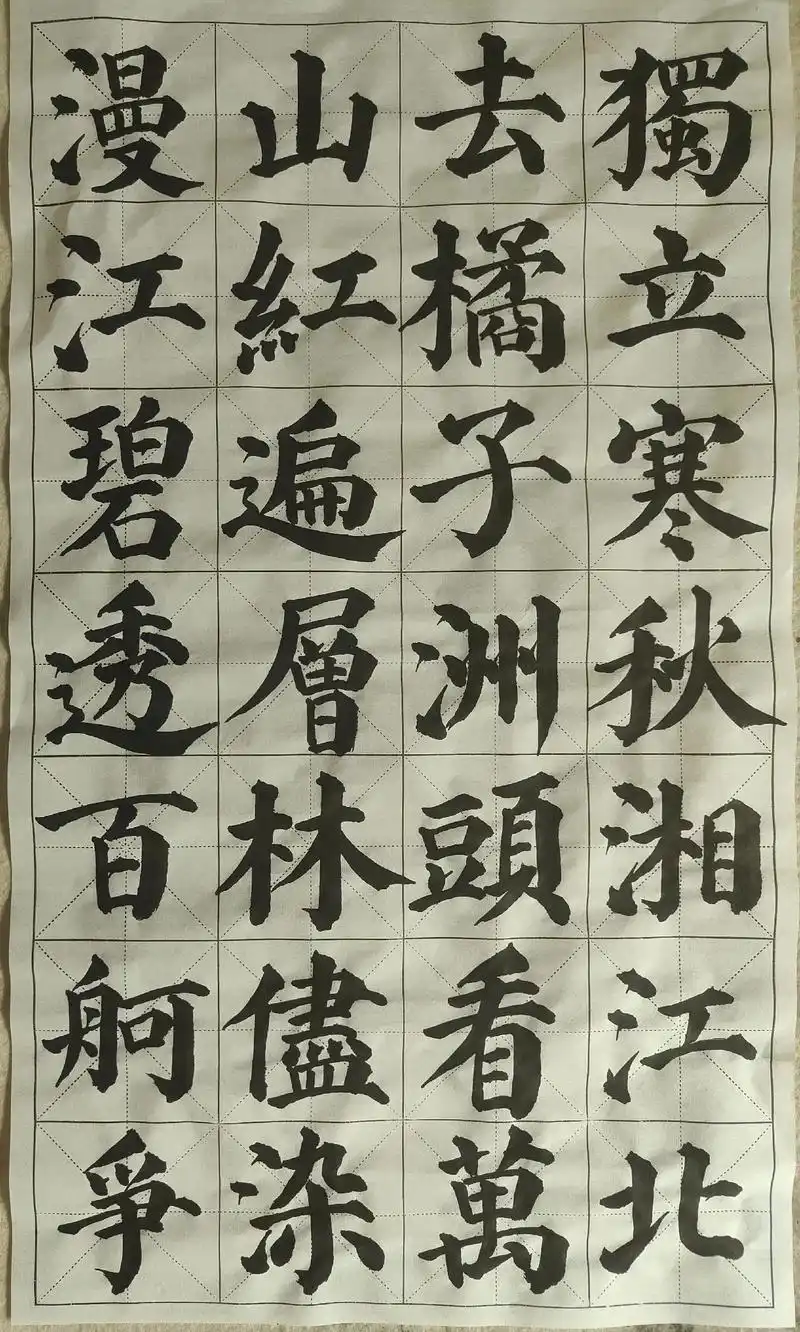 獨立寒秋湘江北
去橘子洲頭看萬
山紅遍層林儘染
漫江碧透百舸爭